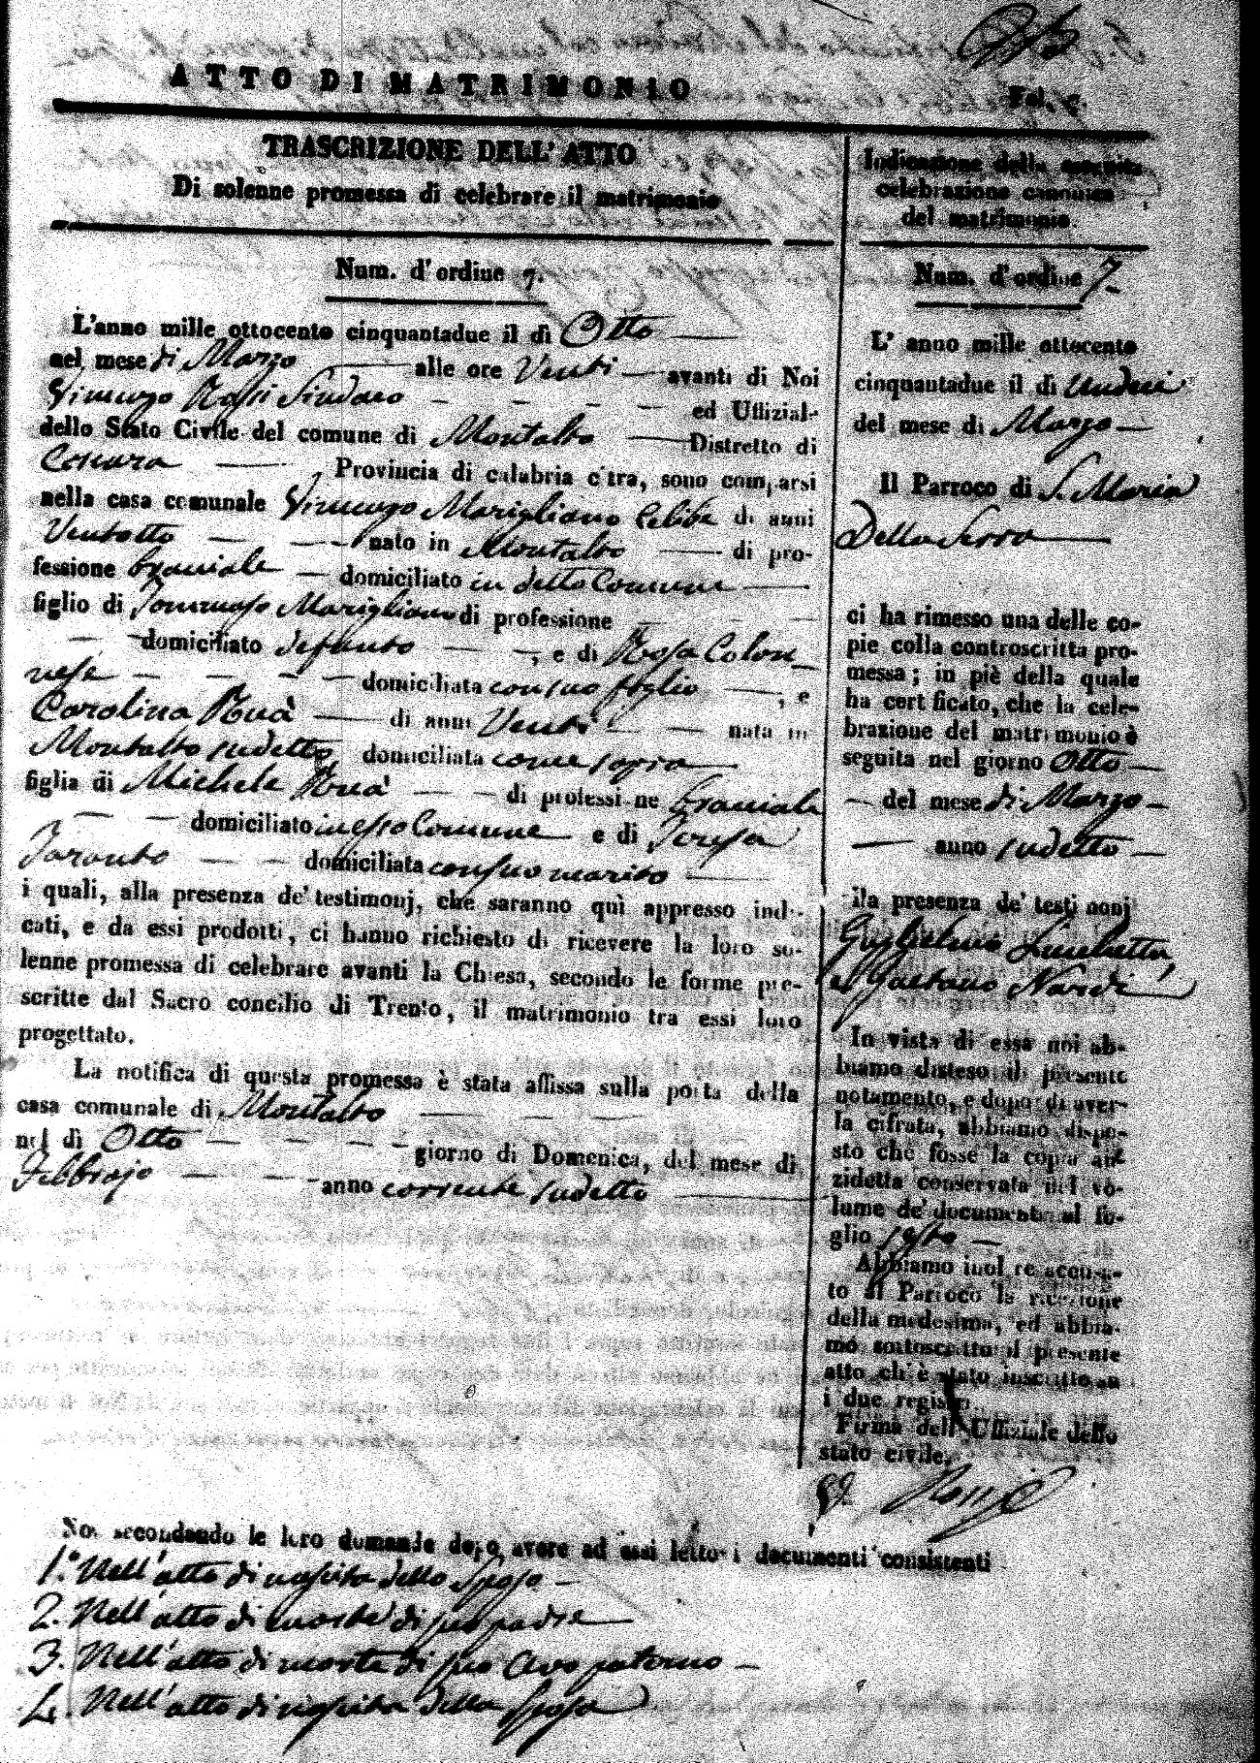 ATTO DI MATRIMONIO
Fol. 7.
TRASCRIZIONE DELL' ATTO
Di solenne promessa di celebrare il matrimonio
Num. d'ordine 7.
L'anno mille ottocento cinquantadue il dì Otto
nel mese di Marzo alle ore Venti avanti di Noi
Vincenzo Rossi Sindaco ed Uffizial
dello Stato Civile del comune di Montalto Distretto di
Cosenza Provincia di calabria citra, sono comparsi
nella casa comunale Vincenzo Marigliano Celibe di anni
Ventotto nato in Montalto di pro-
fessione braciale domiciliato in detto Comune
figlio di Tommaso Marigliano di professione
domiciliato defunto , e di Rosa Colon
nese domiciliata con suo figlio , e
Carolina Ruà di anni Venti nata in
Montalto sudetto, domiciliata come sopra
figlia di Michele Ruà di professione braciale
domiciliato in esso Comune e di Teresa
Taranto domiciliata con suo marito
i quali, alla presenza de' testimonj, che saranno quì appresso indi-
cati, e da essi prodotti, ci hanno richiesto di ricevere la loro so-
lenne promessa di celebrare avanti la Chiesa, secondo le forme pre-
scritte dal Sacro concilio di Trento, il matrimonio tra essi loro
progettato.
La notifica di questa promessa è stata affissa sulla porta della
casa comunale di Montalto
nel dì Otto giorno di Domenica, del mese di
Febbrajo anno corrente sudetto
Noi secondando le loro domande dopo avere ad essi letto i documenti consistenti
1.° Nell'atto di nascita dello Sposo
2. Nell'atto di morte di suo padre
3. Nell'atto di morte di suo Avo paterno
4. Nell'atto di nascita della Sposa
Indicazione della seguita
celebrazione canonica
del matrimonio.
Num. d'ordine 7
L' anno mille ottocento
cinquantadue il dì Undeci
del mese di Marzo
Il Parroco di S. Maria
Della Serra
ci ha rimesso una delle co-
pie colla controscritta pro-
messa; in piè della quale
ha certificato, che la cele-
brazione del matrimonio è
seguita nel giorno Otto
del mese di Marzo
anno sudetto
alla presenza de' testimonj
Guglielmo
e Gaetano Nardi
In vista di essa noi ab-
biamo disteso il presente
notamento, e dopo di aver-
la cifrata, abbiamo dispo-
sto che fosse la copia an-
zidetta conservata nel vo-
lume de' documenti al fo-
glio sesto
Abbiamo inoltre accusa-
to al Parroco la ricezione
della medesima, ed abbia-
mo sottoscritto il presente
atto ch'è stato inscritto su
i due registri.
Firma dell' Uffiziale dello
stato civile.
Rossi